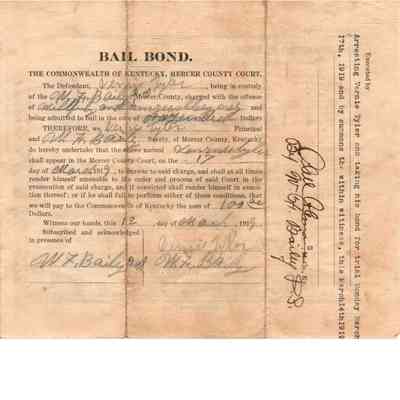 BAIL BOND.
THE COMMONWEALTH OF KENTUCKY, MERCER COUNTY COURT.
The Defendant, being in custody
of the Mercer County, charged with the offense
of and
being admitted to bail in the sum of Dollars
THEREFORE, we Principal
and Surety, of Mercer County, Kentucky
do hereby undertake that the above named
shall appear in the Mercer County Court, on the 17
day of March to answer to said charge, and shall at all times
render himself amenable to the order and process of said Court in the
prosecution of said charge, and if convicted shall render himself in execu-
tion thereof; or if he shall fail to perform either of these conditions, that
we will pay to the Commonwealth of Kentucky the sum of
Dollars.
Witness our hands, this 12 March 1919
Subscribed and acknowledged
in presence of
W F Baily
W F Baily
Executed by
Arresting Vernie Tyler and taking his bond for trial Monday March
17th, 1919 and by summons the within witness, this March14th1919
By W F Bailey D.S.